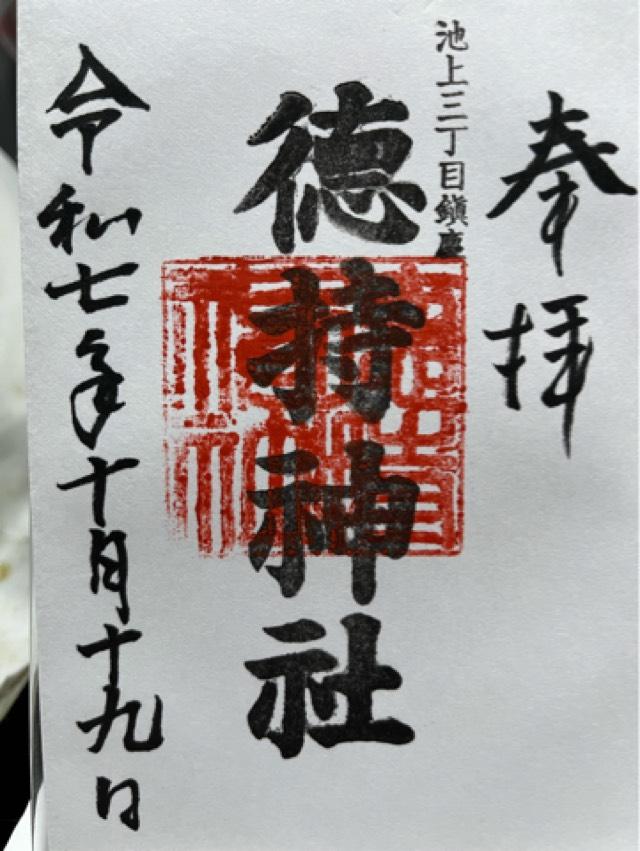 奉拝
池上三丁目鎮座
徳持神社
令和七年十月十九日